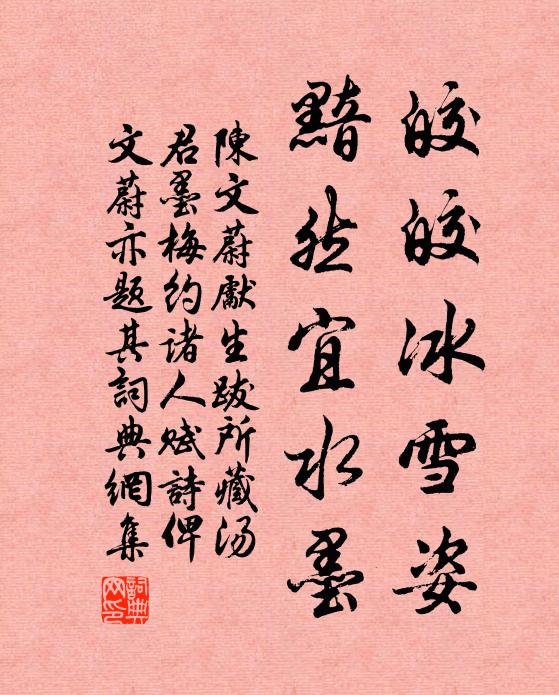 皎皎冰雪姿
黯然宜水墨
陳文蔚獻生跋所藏湯
君墨梅約諸人賦詩俾
文蔚亦題其詞典網集
詞典網集